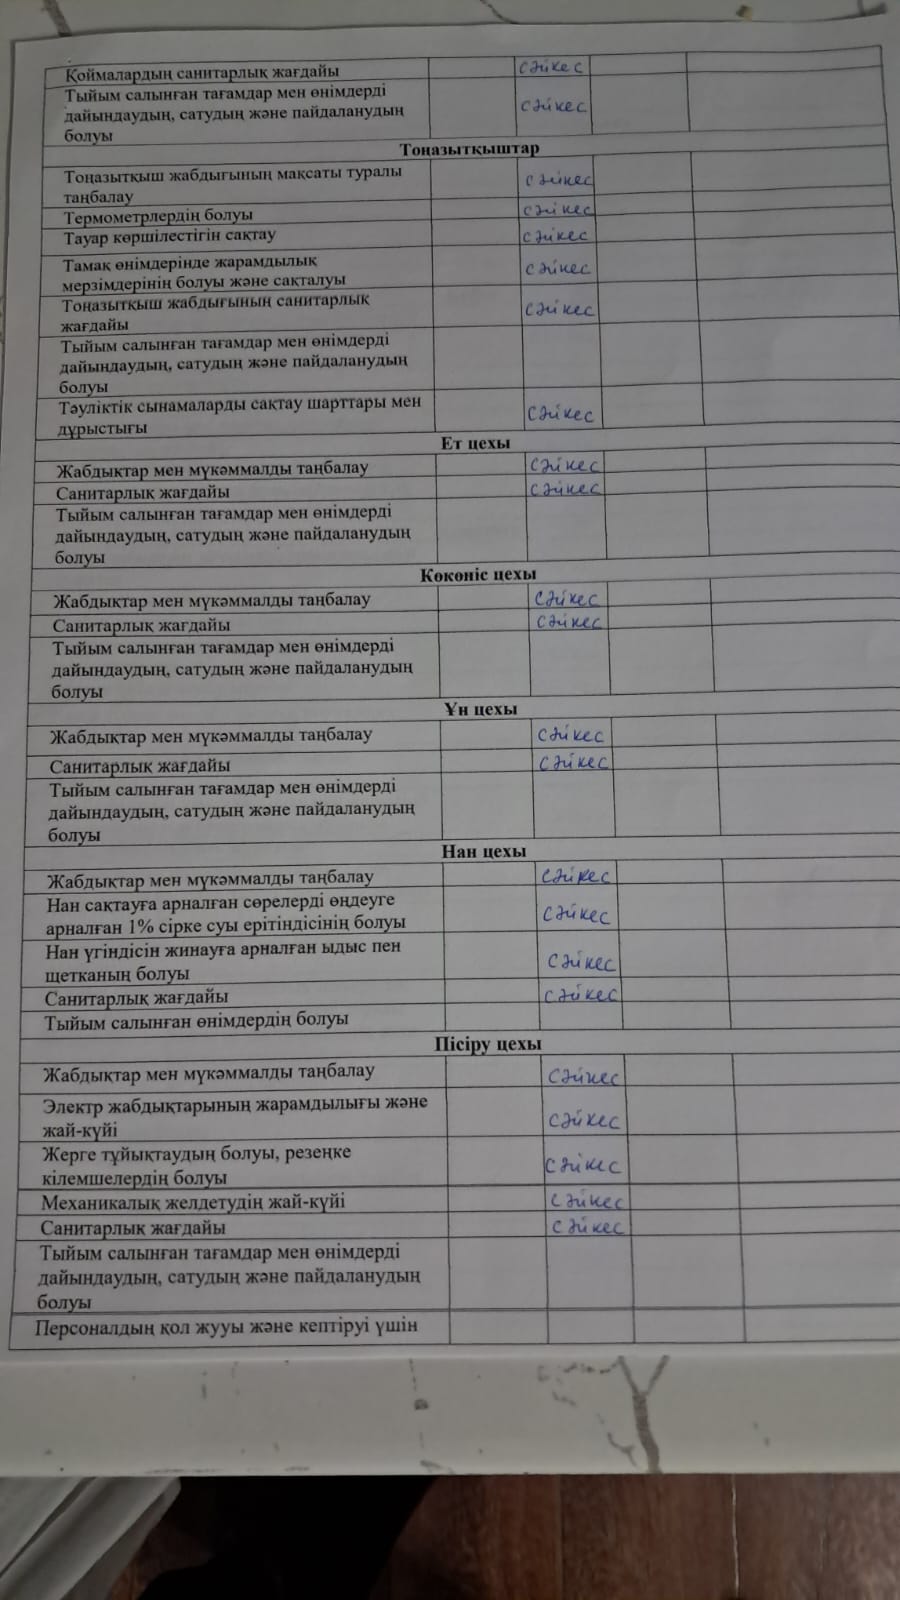 Қоймалардың санитарлық жағдайы сәйкес
Тыйым салынған тағамдар мен өнімдерді
дайындаудың, сатудың және пайдаланудың сәйкес
болуы
Тоңазытқыштар
Тоңазытқыш жабдығының мақсаты туралы сәйкес
таңбалау
Термометрлердің болуы сәйкес
Тауар көршілестігін сақтау сәйкес
Тамақ өнімдерінде жарамдылық сәйкес
мерзімдерінің болуы және сақталуы
Тоңазытқыш жабдығының санитарлық сәйкес
жағдайы
Тыйым салынған тағамдар мен өнімдерді
дайындаудың, сатудың және пайдаланудың
болуы
Тәуліктік сынамаларды сақтау шарттары мен сәйкес
дұрыстығы
Ет цехы
Жабдықтар мен мүкәммалды таңбалау сәйкес
Санитарлық жағдайы сәйкес
Тыйым салынған тағамдар мен өнімдерді
дайындаудың, сатудың және пайдаланудың
болуы
Көкөніс цехы
Жабдықтар мен мүкәммалды таңбалау сәйкес
Санитарлық жағдайы сәйкес
Тыйым салынған тағамдар мен өнімдерді
дайындаудың, сатудың және пайдаланудың
болуы
Ұн цехы
Жабдықтар мен мүкәммалды таңбалау сәйкес
Санитарлық жағдайы сәйкес
Тыйым салынған тағамдар мен өнімдерді
дайындаудың, сатудың және пайдаланудың
болуы
Нан цехы
Жабдықтар мен мүкәммалды таңбалау сәйкес
Нан сақтауға арналған сөрелерді өңдеуге сәйкес
арналған 1% сірке суы ерітіндісінің болуы
Нан үгіндісін жинауға арналған ыдыс пен сәйкес
щетканың болуы
Санитарлық жағдайы сәйкес
Тыйым салынған өнімдердің болуы
Пісіру цехы
Жабдықтар мен мүкәммалды таңбалау сәйкес
Электр жабдықтарының жарамдылығы және сәйкес
жай-күйі
Жерге тұйықтаудың болуы, резеңке сәйкес
кілемшелердің болуы
Механикалық желдетудің жай-күйі сәйкес
Санитарлық жағдайы сәйкес
Тыйым салынған тағамдар мен өнімдерді
дайындаудың, сатудың және пайдаланудың
болуы
Персоналдың қол жууы және кептіруі үшін